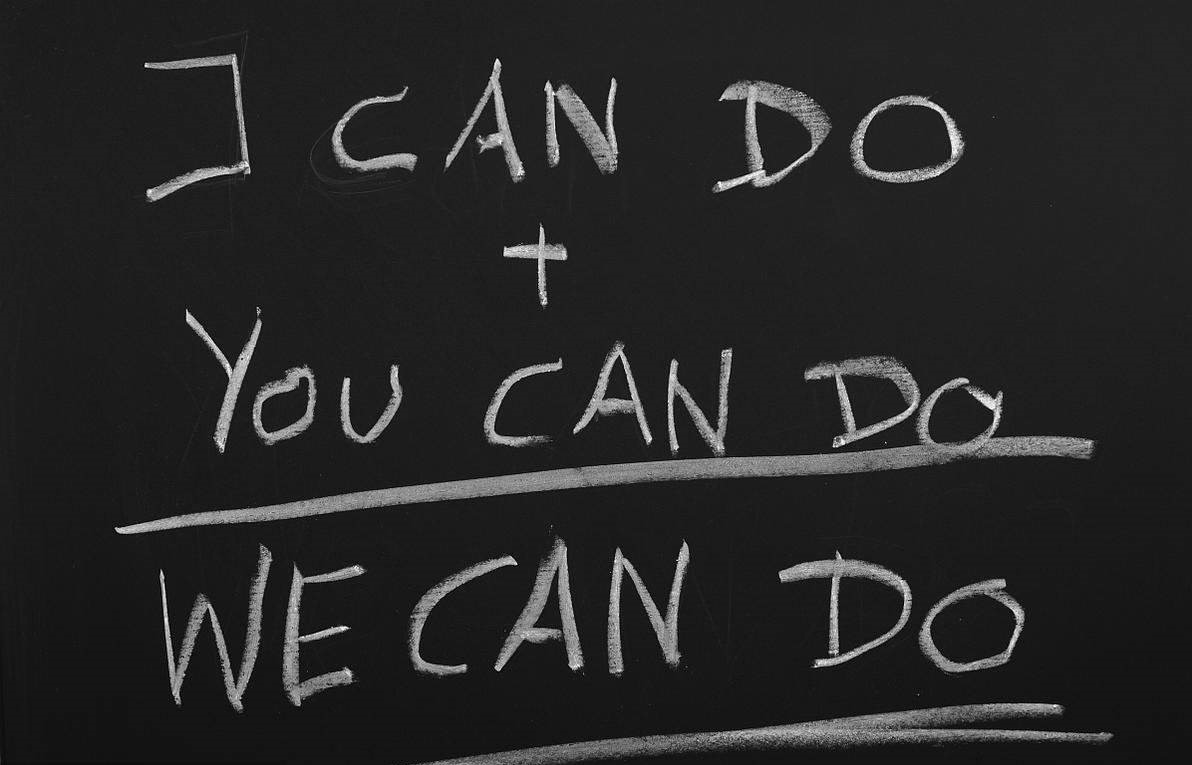 I CAN DO
+
YOU CAN DO
WE CAN DO